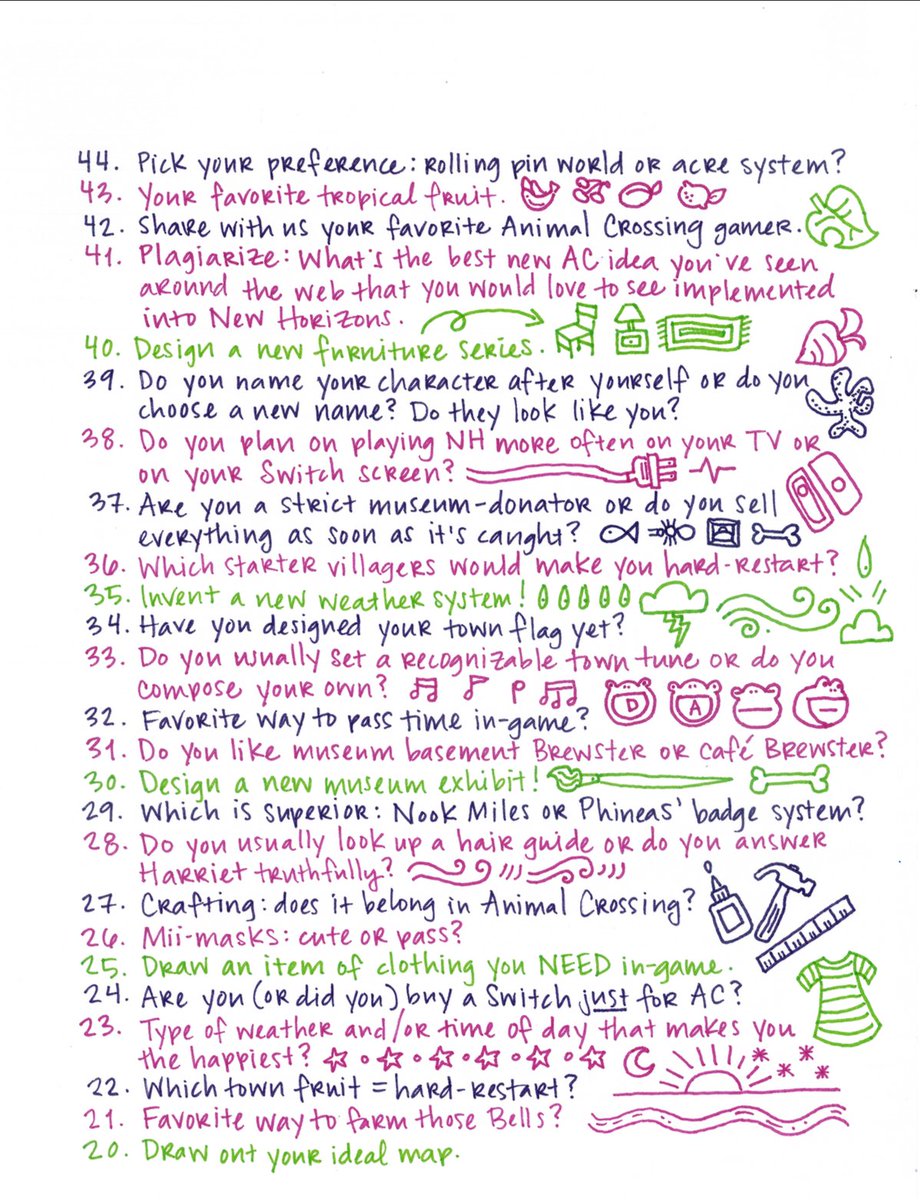 44. Pick your preference: rolling pin world or acre system?
43. Your favorite tropical fruit.
42. Share with us your favorite Animal Crossing gamer.
41. Plagiarize: What's the best new AC idea you've seen
around the web that you would love to see implemented
into New Horizons.
40. Design a new furniture series.
39. Do you name your character after yourself or do you
choose a new name? Do they look like you?
38. Do you plan on playing NH more often on your TV or
on your Switch screen?
37. Are you a strict museum-donator or do you sell
everything as soon as it's caught?
36. Which starter villagers would make you hard-restart?
35. Invent a new weather system!
34. Have you designed your town flag yet?
33. Do you usually set a recognizable town tune or do you
compose your own?
D A
32. Favorite way to pass time in-game?
31. Do you like museum basement Brewster or café Brewster?
30. Design a new museum exhibit!
29. Which is superior: Nook Miles or Phineas' badge system?
28. Do you usually look up a hair guide or do you answer
Harriet truthfully?
27. Crafting: does it belong in Animal Crossing?
26. Mii-masks: cute or pass?
25. Draw an item of clothing you NEED in-game.
24. Are you (or did you) buy a Switch just for AC?
23. Type of weather and/or time of day that makes you
the happiest?
22. Which town fruit = hard-restart?
21. Favorite way to farm those Bells?
20. Draw out your ideal map.